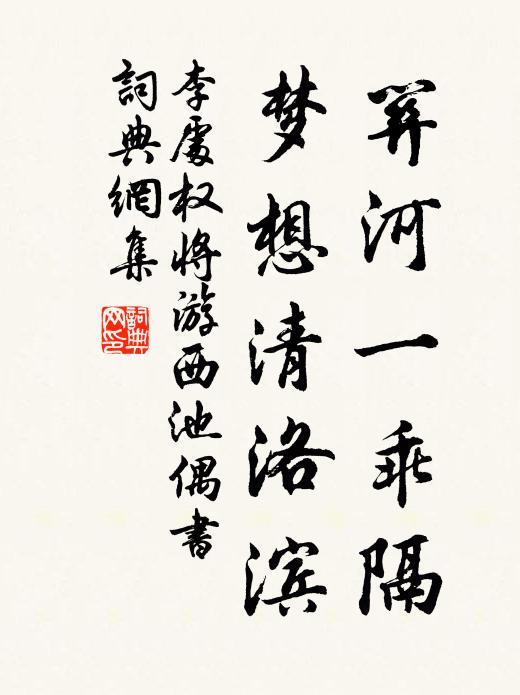 关河一乖隔
梦想清洛滨
李處权将游西池偶書
詞典網集
詞典网印